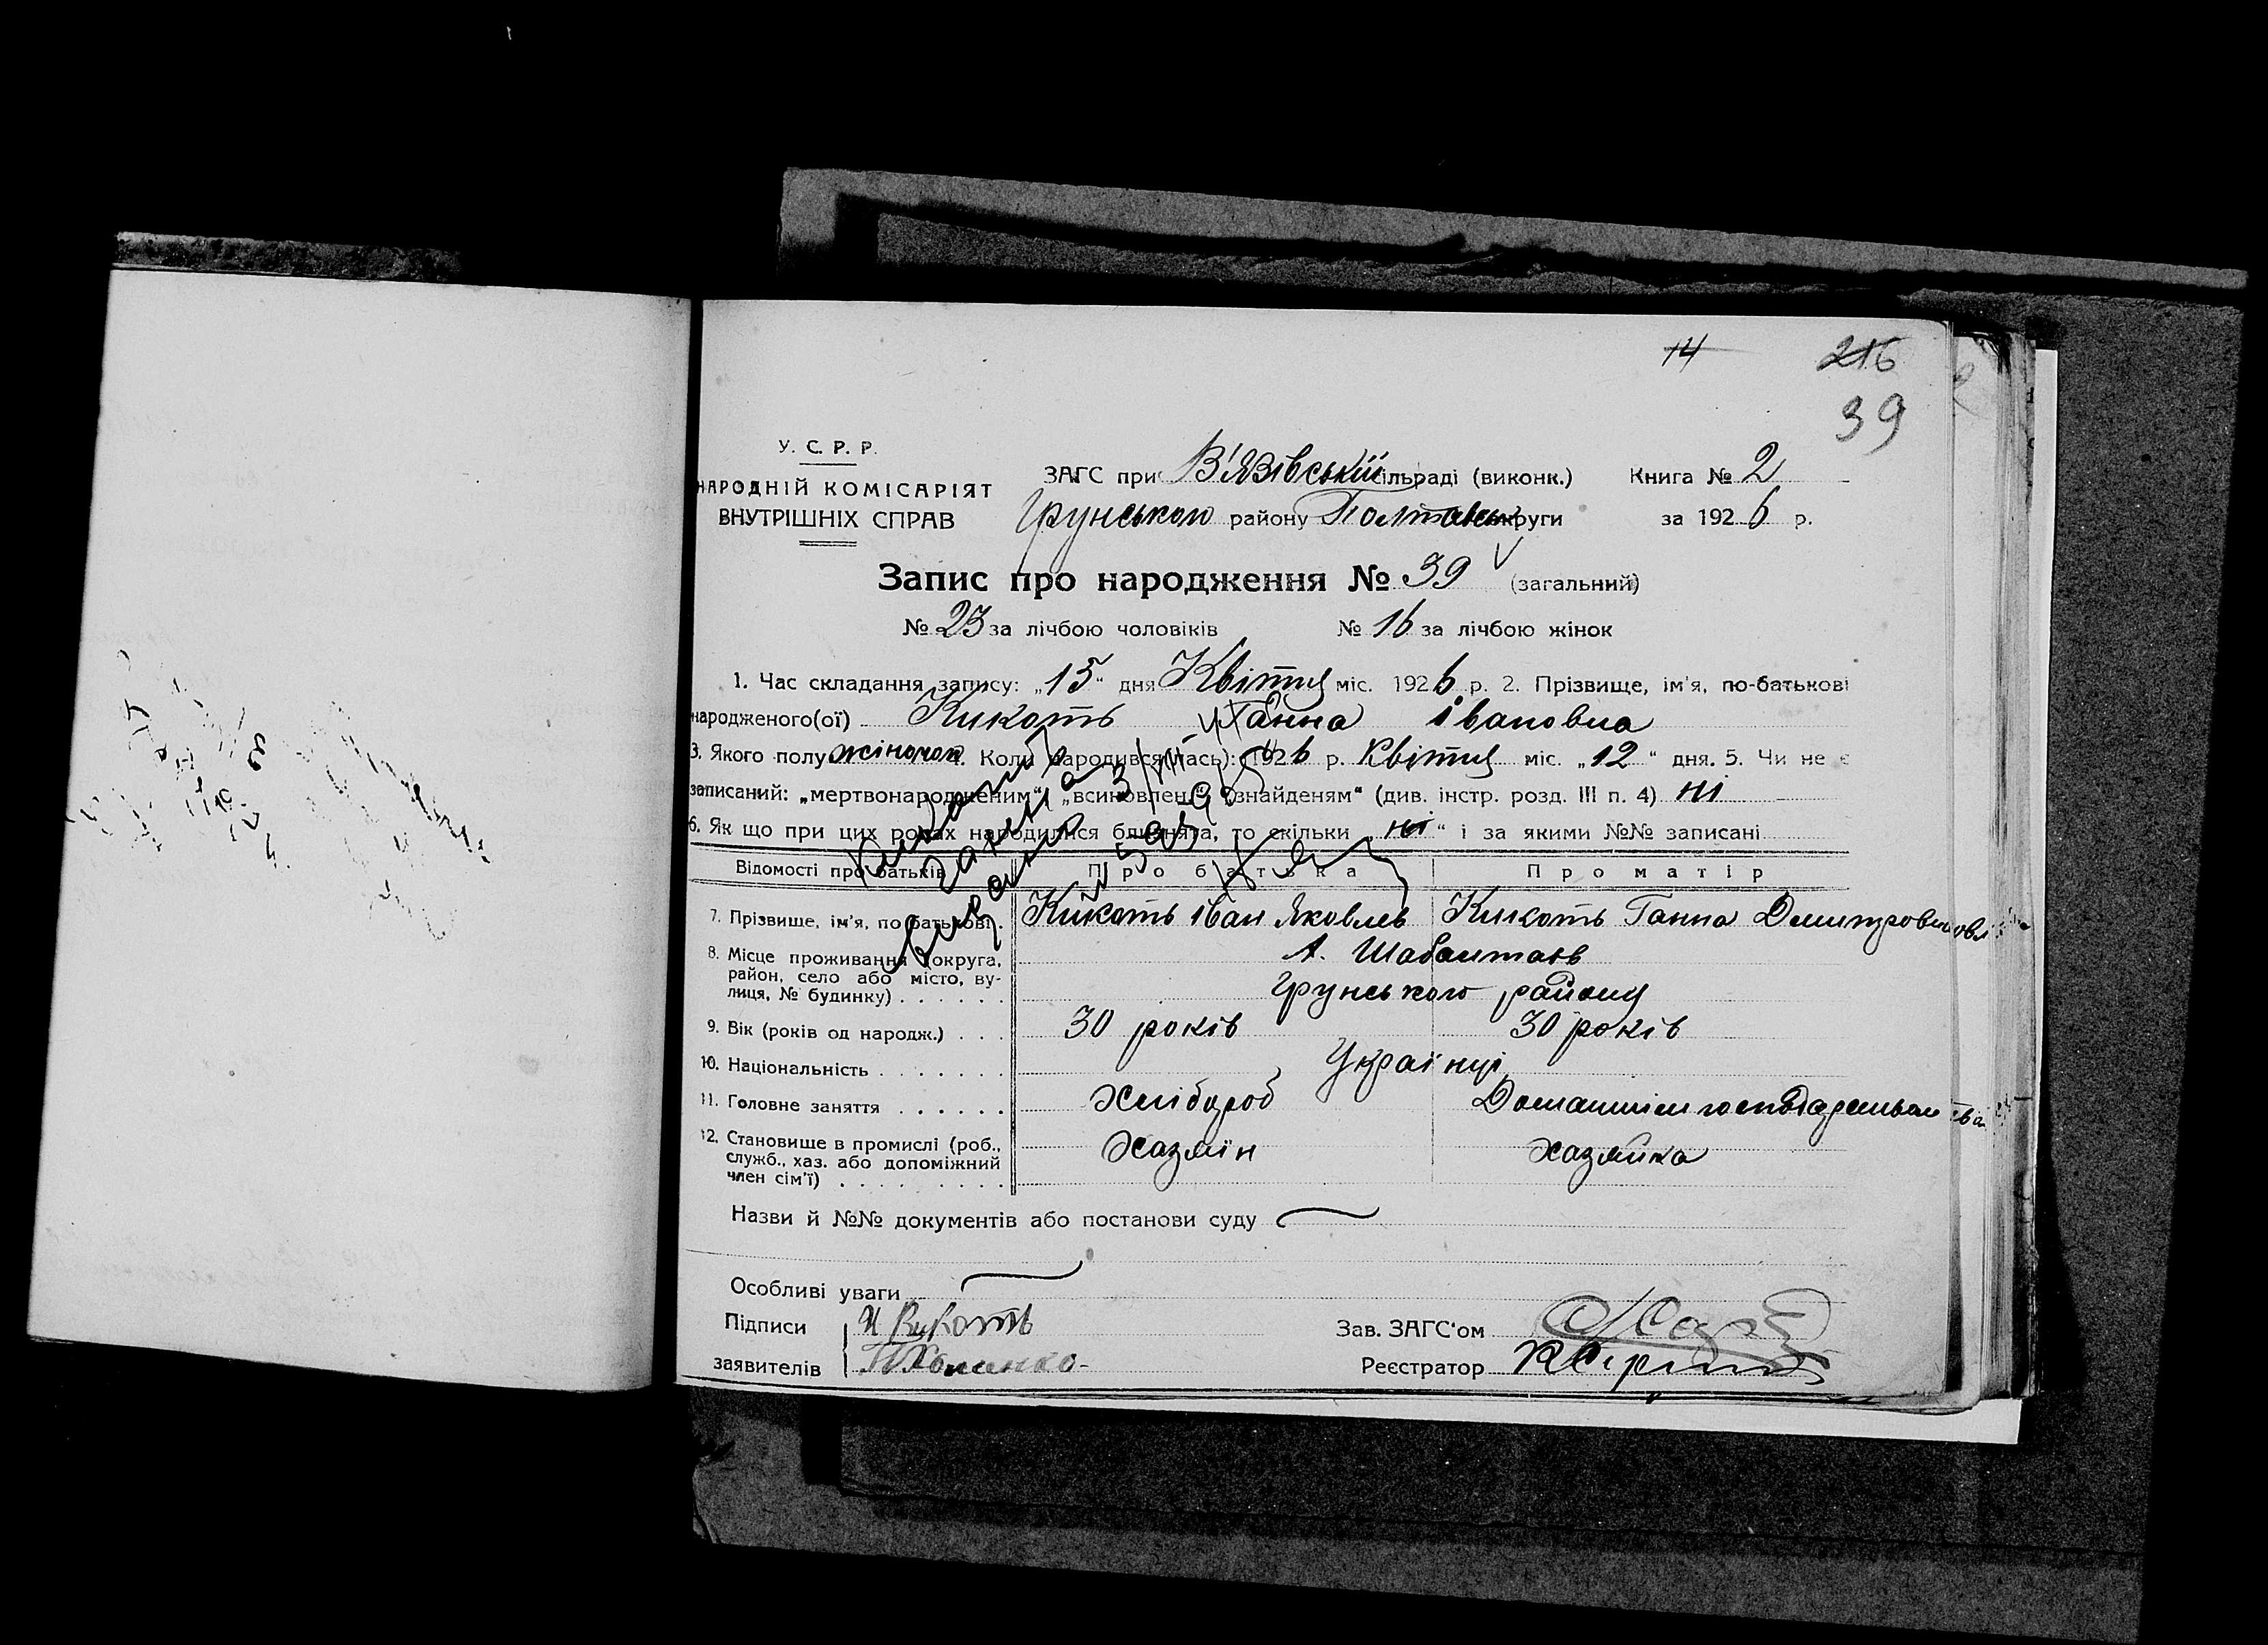 14 216
39
У. С. Р. Р.
НАРОДНІЙ КОМІСАРІЯТ
ВНУТРІШНІХ СПРАВ
ЗАГС при В'язівській сільраді (виконк.) Книга № 2
Грунського району Полтавськ округи за 1926 р.
Запис про народження № 39 (загальний)
№ 23 за лічбою чоловіків № 16 за лічбою жінок
1. Час складання запису: „15“ дня Квітня міс. 1926 р. 2. Прізвище, ім'я, по-батькові
народженого(ої) Кикоть Ганна Івановна
3. Якого полу жіночок 4. Коли народився(лась): 1926 р. Квітня міс. „12“ дня. 5. Чи не є
записаний: „мертвонародженим“, „всиновлен“ „знайденям“ (див. інстр. розд. III п. 4) ні
6. Як що при цих родах народилися близнята, то скільки „ні“ і за якими №№ записані
Відомості про батьків Про батька Про матір
7. Прізвище, ім'я, по батькові. Кикоть Іван Яковлев Кикоть Ганна Дмитровна
8. Місце проживання (округа, район, село або місто, вулиця, № будинку) . . . . . . Х. Шабалтаєв
Грунського району
9. Вік (років од народж.) . . . 30 років 30 років
10. Національність . . . . . . . Українці
11. Головне заняття . . . . . . Хлібороб Домашнім
12. Становище в промислі (роб., служб., хаз. або допоміжний член сім'ї) . . . . . . . . . Хазяїн хазяйка
Назви й №№ документів або постанови суду
Особливі уваги
Підписи И Кикоть Зав. ЗАГС'ом
заявителів Реєстратор